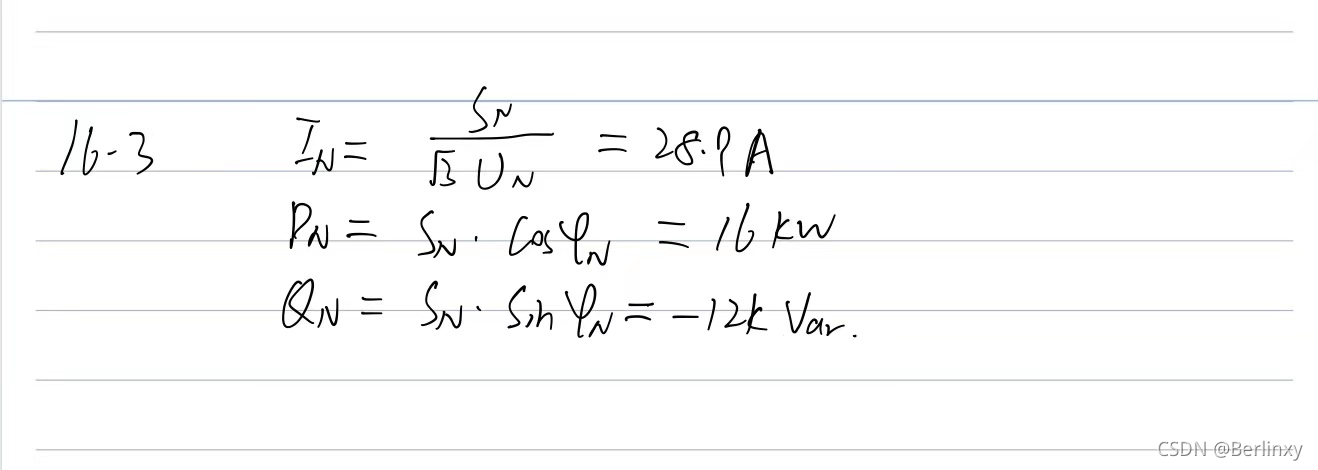 16-3 I_N = S_N / (√3 U_N) = 28.9 A
P_N = S_N · cosφ_N = 16 kW
Q_N = S_N · sinφ_N = -12 k Var.
CSDN @Berlinxy